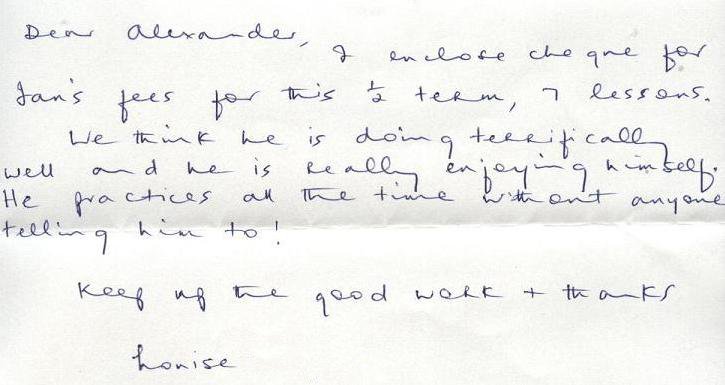 Dear Alexander,
I enclose cheque for
Ian's fees for this ½ term, 7 lessons.
We think he is doing terrifically
well and he is really enjoying himself.
He practices all the time without anyone
telling him to!
Keep up the good work + thanks
Louise